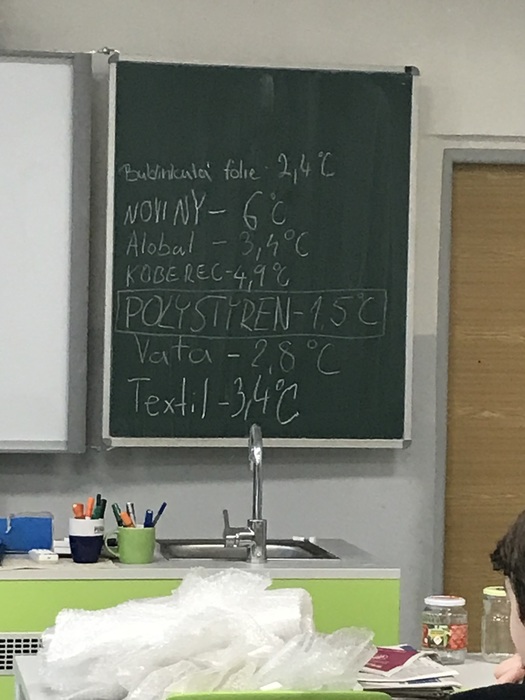 Bublinkatá fólie - 2,4°C
NOVINY - 6°C
Alobal - 3,4°C
KOBEREC - 4,9°C
POLYSTYREN - 1,5°C
Vata - 2,8°C
Textil - 3,4°C